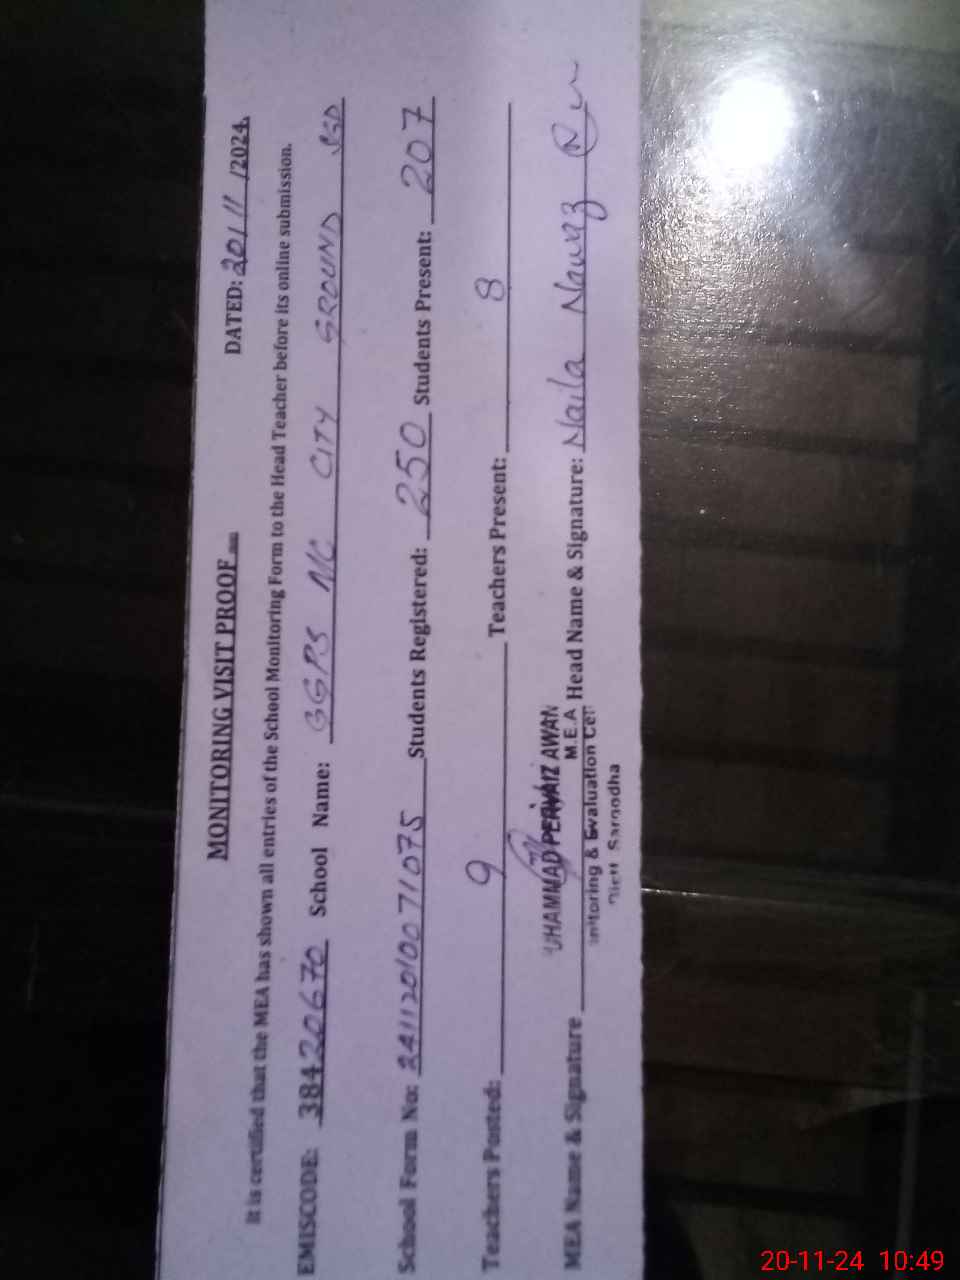 MONITORING VISIT PROOF
DATED: 20/11/2024.
It is certified that the MEA has shown all entries of the School Monitoring Form to the Head Teacher before its online submission.
EMISCODE: 38420670 School Name: GGPS MC CITY GROUND SGD
School Form No: 2411120100 71075 Students Registered: 250 Students Present: 207
Teachers Posted: 9 Teachers Present: 8
UHAMMAD PERVAIZ AWAN
MEA Name & Signature M.E.A Head Name & Signature: Naila Nawaz
nitoring & Evaluation Cen
Distt Sargodha
20-11-24 10:49